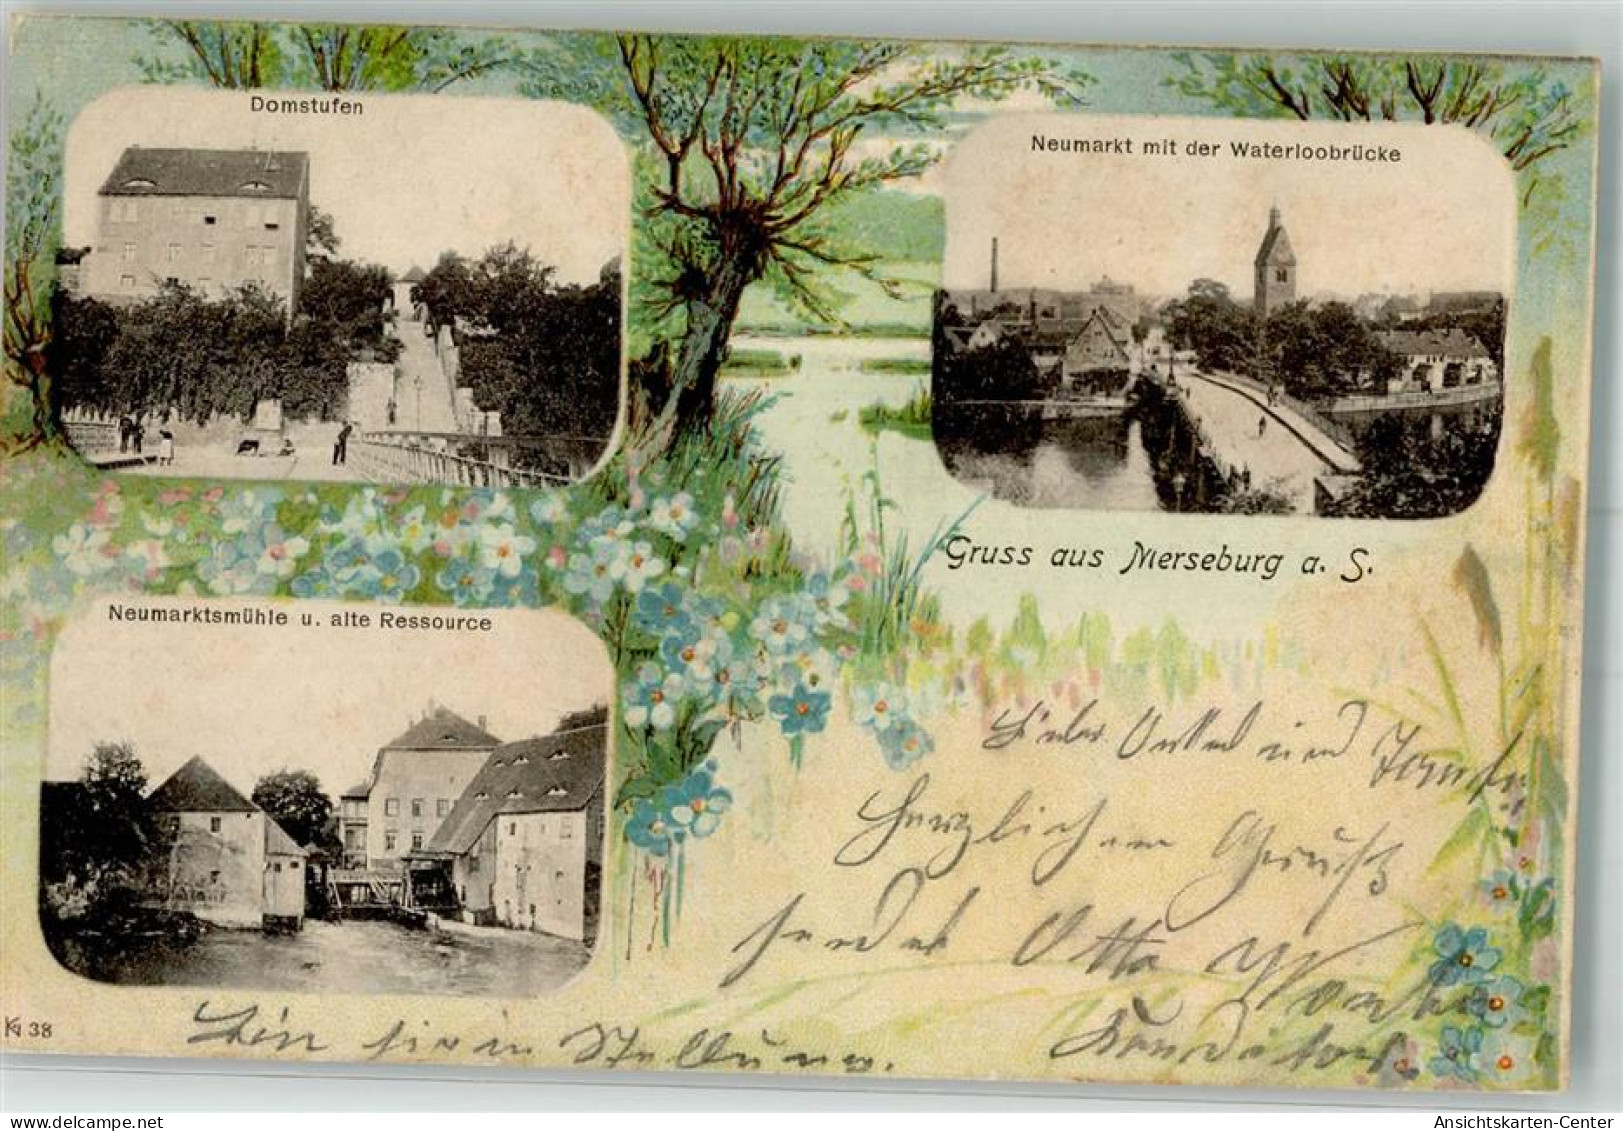 Domstufen
Neumarkt mit der Waterloobrücke
Gruss aus Merseburg a. S.
Neumarktsmühle u. alte Ressource
Lieber Onkel und
Herzlichen Gruß
sendet Otto
Bin hier in Stellung.
38
AnsichtsKarten-Center